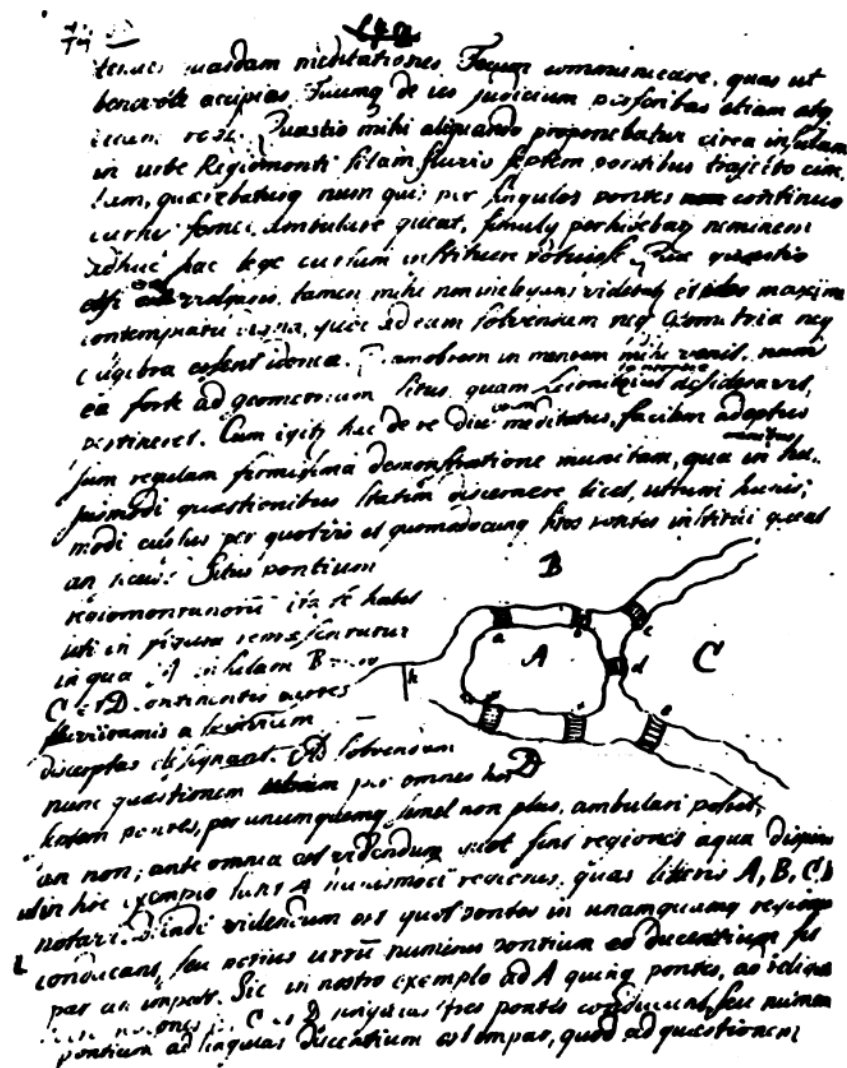 quasdam meditationes Tecum communicare, quas ut
benevole accipias Tuumq de iis judicium perscribas etiam atq
etiam rogo. Quaestio mihi aliquando proponebatur circa insulam
in urbe Regiomonti sitam fluvio septem pontibus trajecto cinc
tam, quaerebaturq num quis per singulos pontes continuo
cursu ambulare queat, simulq perhibebatq neminem
adhuc hac lege cursum instituere potuisse. Quae quaestio
etsi vulgaris, tamen mihi non videbatq maxime
contemplatu digna, quod ad eam solvendam neq Geometria neq
algebra essent idonea. Quamobrem in mentem mihi venit, num
ea forte ad geometriam situs, quam Leibnitzius desideravit,
pertineret. Cum igitq hac de re diu meditatus, facilem adeptus
sum regulam firmissima demonstratione munitam, qua in hu
jusmodi quaestionibus statim discernere licet, utrum hujus
modi cursus per quotvis et quomodocunq sitos pontes institui queat
an secus. Situs pontium
regiomontanorū ita se habet
uti in figura repraesentatur
in qua A insulam B
C et D continentis partes
fluvii ramis a se
discerptas designant. Ad solvendam
B
a
b
c
A
d
C
h
e
D
nunc quaestionem utrum per omnes hos
septem pontes, per unumquemq semel non plus, ambulari possit,
an non; ante omnia est videndum quot sint regiones aqua
uti in hoc exemplo sunt 4 hujusmodi regiones, quas litteris A, B, C, D
notavi. Deinde videndum est quot pontes in unamquamq regionem
conducant, seu potius utrū numerus pontium eo ducentium sit
par an impar. Sic in nostro exemplo ad A quinq pontes, ad reliquas
C et D singulas tres pontes conducunt, seu numerus
pontium ad singulas ducentium est impar, quod ad quaestionem